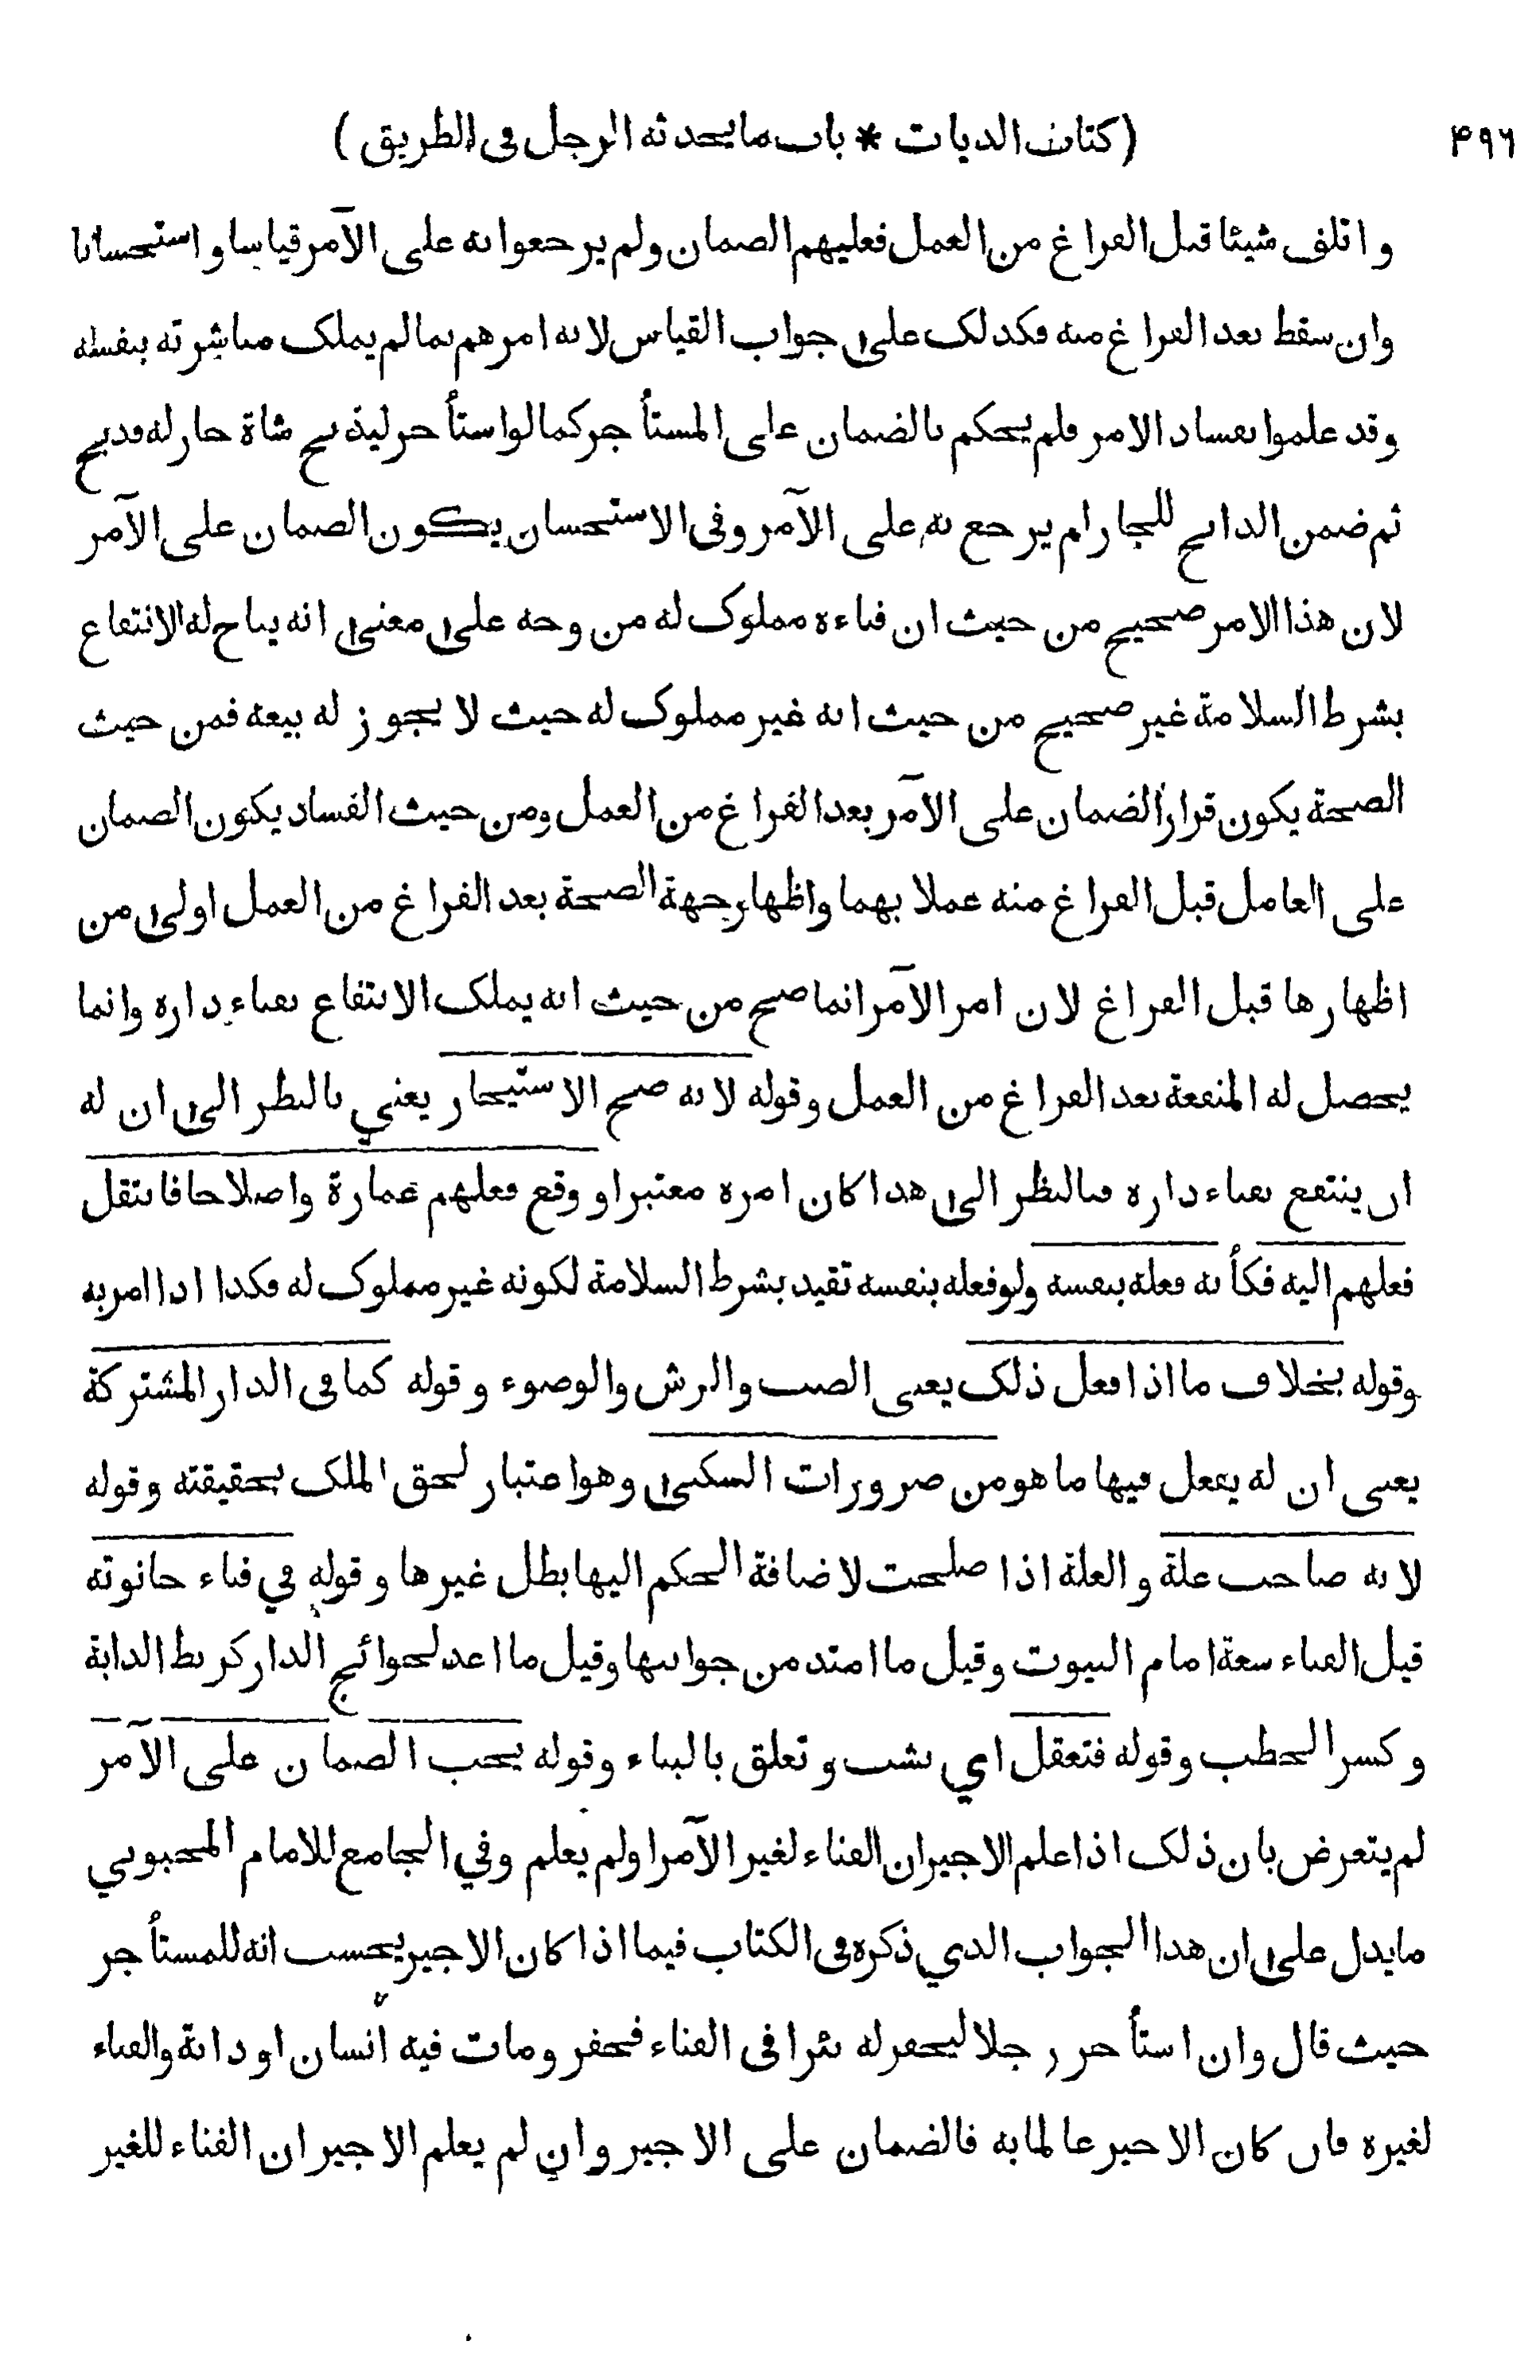 ۴۹٦
( كتاب الديات * باب ما يحدثه الرجل فى الطريق )
و اتلف شيئا قبل الفراغ من العمل فعليهم الضمان ولم يرجعوا به على الآمر قياسا و استحسانا
وان سقط بعد الفراغ منه فكذلك على جواب القياس لانه امرهم بما لم يملك مباشرته بنفسه
وقد علموا بفساد الامر فلم يحكم بالضمان على المستأجر كما لو استأجر ليذبح شاة جار له فذبح
ثم ضمن الذابح للجار لم يرجع به على الآمر وفى الاستحسان يكون الضمان على الآمر
لان هذا الامر صحيح من حيث ان فناءه مملوك له من وجه على معنى انه يباح له الانتفاع
بشرط السلامة غير صحيح من حيث انه غير مملوك له حيث لا يجوز له بيعه فمن حيث
الصحة يكون قرار الضمان على الآمر بعد الفراغ من العمل ومن حيث الفساد يكون الضمان
على العامل قبل الفراغ منه عملا بهما واظهار جهة الصحة بعد الفراغ من العمل اولى من
اظهارها قبل الفراغ لان امر الآمر انما صح من حيث انه يملك الانتفاع بفناء داره وانما
يحصل له المنفعة بعد الفراغ من العمل وقوله لانه صح الاستيجار يعني بالنظر الى ان له
ان ينتفع بفناء داره فبالنظر الى هذا كان امره معتبرا و وقع فعلهم عمارة واصلاحا فانتقل
فعلهم اليه فكأنه فعله بنفسه ولو فعله بنفسه تقيد بشرط السلامة لكونه غير مملوك له فكذا اذا امر به
وقوله بخلاف ما اذا فعل ذلك يعنى الصب والرش والوضوء و قوله كما فى الدار المشتركة
يعنى ان له يفعل فيها ما هو من ضرورات السكنى وهو اعتبار لحق الملك بحقيقته وقوله
لانه صاحب علة والعلة اذا صلحت لاضافة الحكم اليها بطل غيرها و قوله في فناء حانوته
قيل الفناء سعة امام البيوت وقيل ما امتد من جوانبها وقيل ما اعد لحوائج الدار كربط الدابة
و كسر الحطب وقوله فتعقل اي نشب و تعلق بالبناء وقوله يجب الضمان على الآمر
لم يتعرض بان ذلك اذا علم الاجير ان الفناء لغير الآمر او لم يعلم وفي الجامع للامام المحبوبي
ما يدل على ان هذا الجواب الذي ذكره فى الكتاب فيما اذا كان الاجير يحسب انه للمستأجر
حيث قال وان استأجر رجلا ليحفر له بئرا فى الفناء فحفر ومات فيه انسان او دابة والفناء
لغيره فان كان الاجير عالما به فالضمان على الاجير وان لم يعلم الاجير ان الفناء للغير